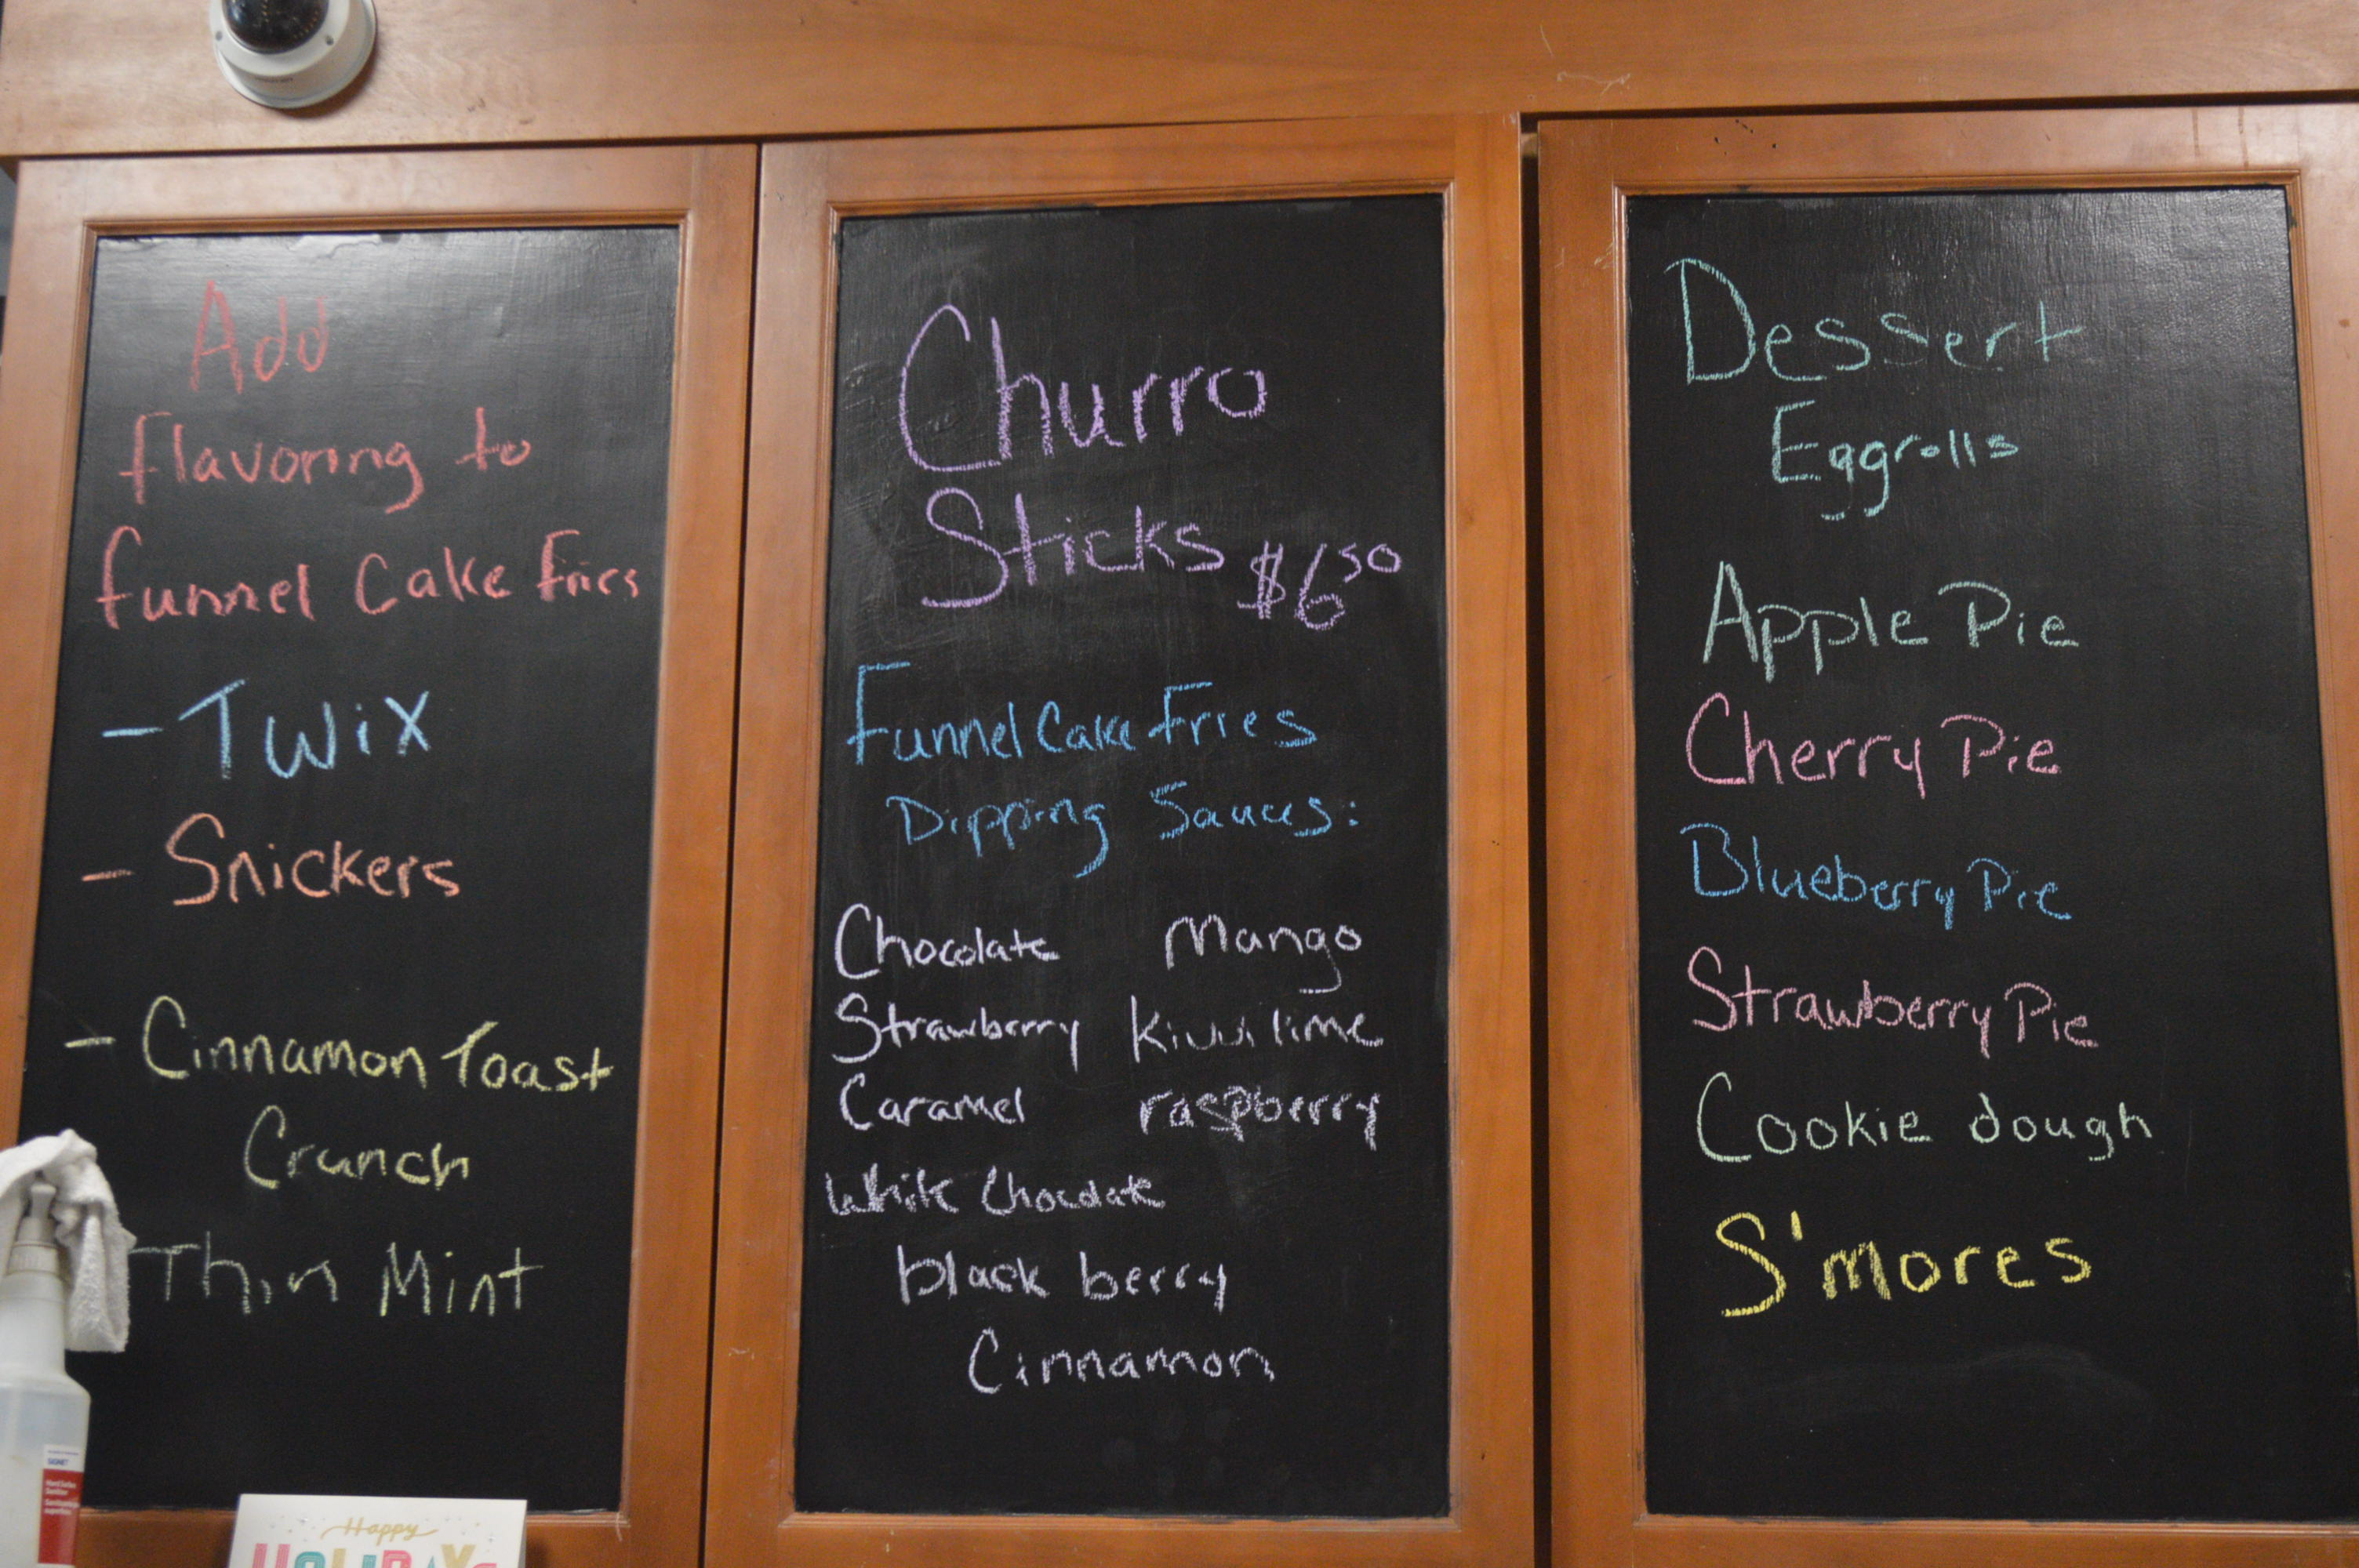 Add
flavoring to
funnel Cake Fries
- Twix
- Snickers
- Cinnamon Toast
Crunch
Thin Mint
Churro
Sticks $6.50
Funnel Cake Fries
Dipping Sauces:
Chocolate Mango
Strawberry Kiwi lime
Caramel raspberry
White Chocolate
black berry
Cinnamon
Dessert
Eggrolls
Apple Pie
Cherry Pie
Blueberry Pie
Strawberry Pie
Cookie dough
S'mores
Happy
HOLIDAYS